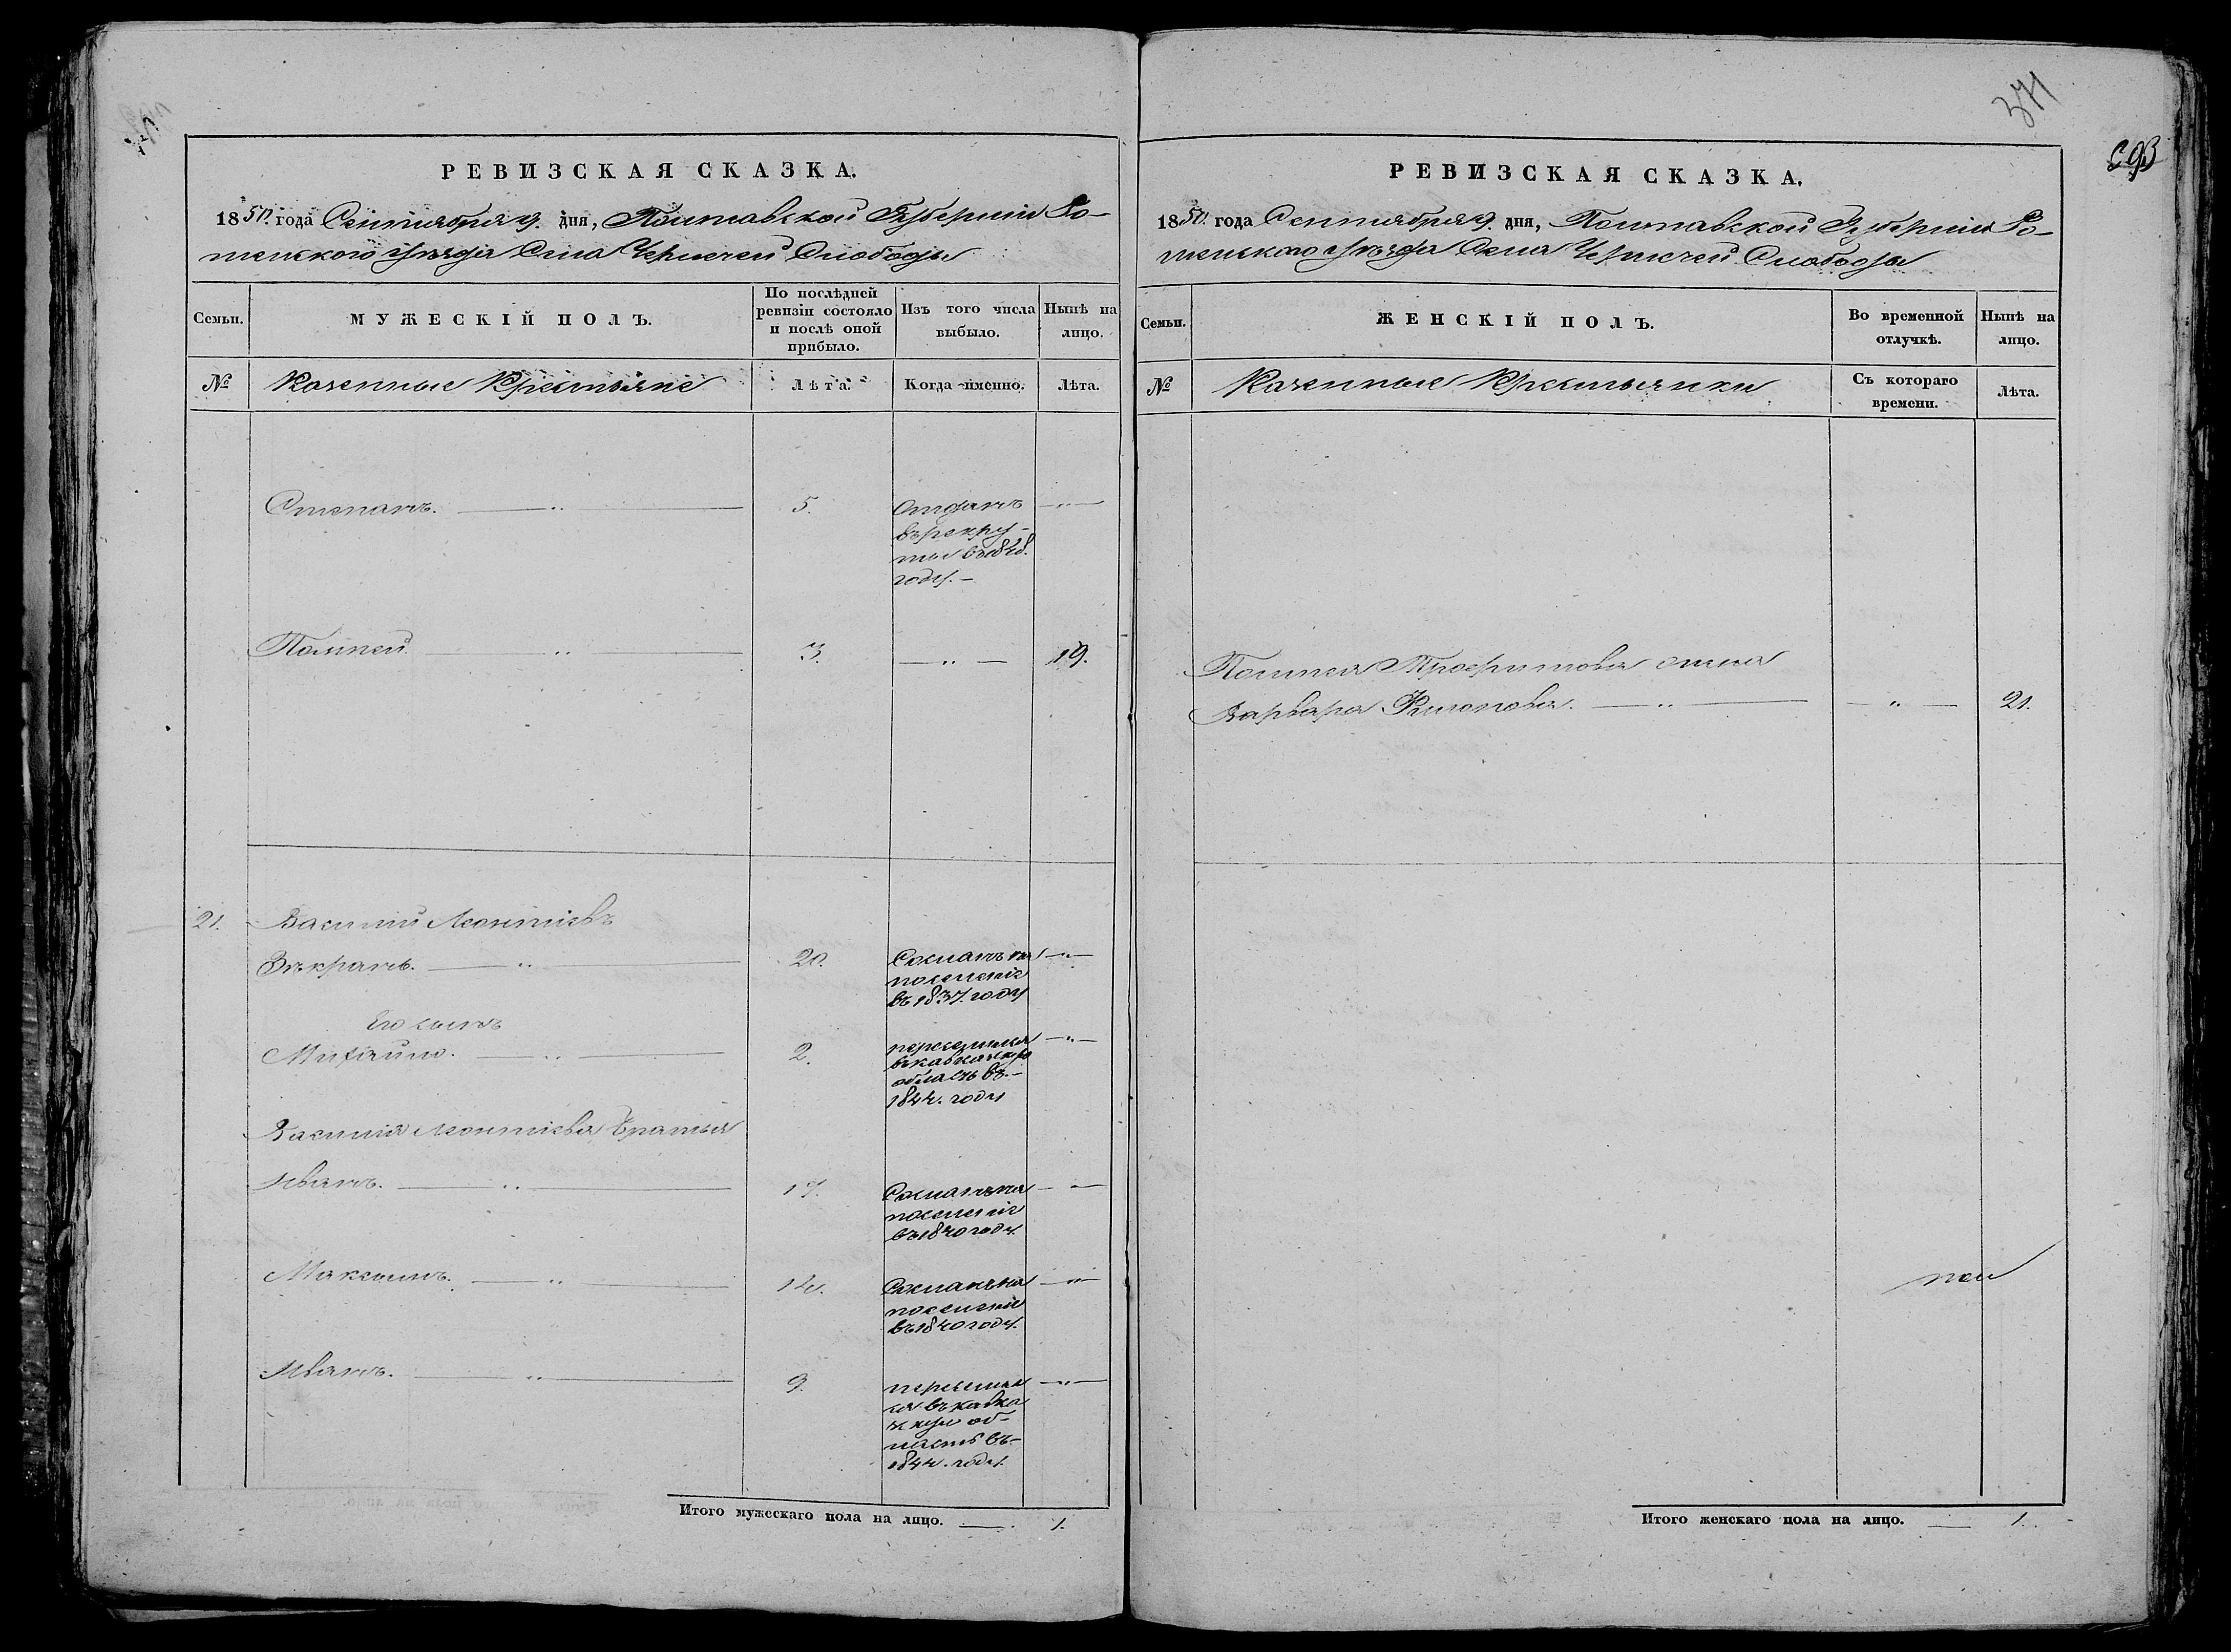 371
693
РЕВИЗСКАЯ СКАЗКА.
1850. года Сентября 9. дня, Полтавской Губерніи Ро-
менского уѣзда Села Чернечей Слободы
Семьи.
МУЖЕСКІЙ ПОЛЪ.
По послѣдней ревизіи состояло и послѣ оной прибыло.
Изъ того числа выбыло.
Нынѣ на лицо.
№
Казенные Крестьяне
Лѣта.
Когда именно.
Лѣта.
Степанъ. — " — 5. Отданъ — " —
въ рекру-
ты въ 1848.
году. —
Помпей — " — 3. — " — 19.
21. Василий Леонтіевъ
— " — 20. Сосланъ на — " —
поселеніе
въ 1837. году
Его сынъ
Михайло. — " — 2. переселился — " —
въ кавказскую
область въ-
1844. году
Василия Леонтіева братья
Иванъ. — " — 17. Сосланъ на — " —
поселеніе
въ 1840 году.
Максимъ. — " — 14. Сосланъ на — " —
поселеніе
въ 1840 году.
Иванъ. — " — 9. переселил — " —
ся въ кавка
зскую об-
ласть въ-
1844. году.
Итого мужескаго пола на лицо. — 1.
РЕВИЗСКАЯ СКАЗКА.
1850. года Сентября 9. дня, Полтавской Губерніи Ро-
менского уѣзда Села Чернечей Слободы
Семьи.
ЖЕНСКІЙ ПОЛЪ.
Во временной отлучкѣ.
Нынѣ на лицо.
№
Казенные Крестьянки
Съ котораго времени.
Лѣта.
Помпея Трофимова жена
Варвара — " — — " — 21.
Итого женскаго пола на лицо. — 1.